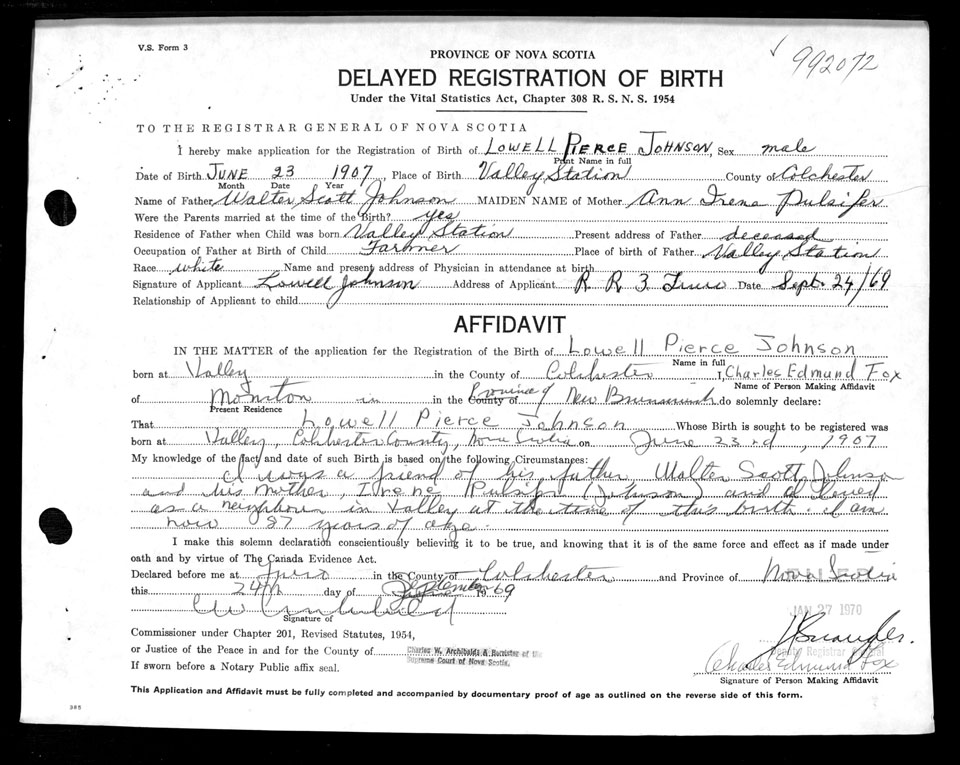 V.S. Form 3
992072
PROVINCE OF NOVA SCOTIA
DELAYED REGISTRATION OF BIRTH
Under the Vital Statistics Act, Chapter 308 R. S. N. S. 1954
TO THE REGISTRAR GENERAL OF NOVA SCOTIA
I hereby make application for the Registration of Birth of LOWELL PIERCE JOHNSON, Sex male
Print Name in full
Date of Birth JUNE 23 1907, Place of Birth Valley Station County of Colchester
Month Date Year
Name of Father Walter Scott Johnson MAIDEN NAME of Mother Ann Irene Pulsifer
Were the Parents married at the time of the Birth? yes
Residence of Father when Child was born Valley Station Present address of Father deceased
Occupation of Father at Birth of Child Farmer Place of birth of Father Valley Station
Race white Name and present address of Physician in attendance at birth
Signature of Applicant Lowell Johnson Address of Applicant R. R. 3 Truro Date Sept. 24/69
Relationship of Applicant to child
AFFIDAVIT
IN THE MATTER of the application for the Registration of the Birth of Lowell Pierce Johnson
Name in full
born at Valley in the County of Colchester I, Charles Edmund Fox
Name of Person Making Affidavit
of Moncton in in the County of Province of New Brunswick do solemnly declare:
Present Residence
That Lowell Pierce Johnson Whose Birth is sought to be registered was
born at Valley, Colchester County, Nova Scotia on June 23rd, 1907
My knowledge of the fact and date of such Birth is based on the following Circumstances:
I was a friend of his father Walter Scott Johnson
and his mother, Irene Pulsifer (Johnson) and I lived
as a neighbour in Valley at the time of this birth. I am
now 87 years of age.
I make this solemn declaration conscientiously believing it to be true, and knowing that it is of the same force and effect as if made under
oath and by virtue of The Canada Evidence Act.
Declared before me at Truro in the County of Colchester and Province of Nova Scotia
this 24th day of September 1969
FILED
JAN 27 1970
Signature of
Commissioner under Chapter 201, Revised Statutes, 1954,
or Justice of the Peace in and for the County of
Charles W. Archibald A Barrister of the
Supreme Court of Nova Scotia.
Deputy Registrar General
If sworn before a Notary Public affix seal.
Charles Edmund Fox
Signature of Person Making Affidavit
This Application and Affidavit must be fully completed and accompanied by documentary proof of age as outlined on the reverse side of this form.
385